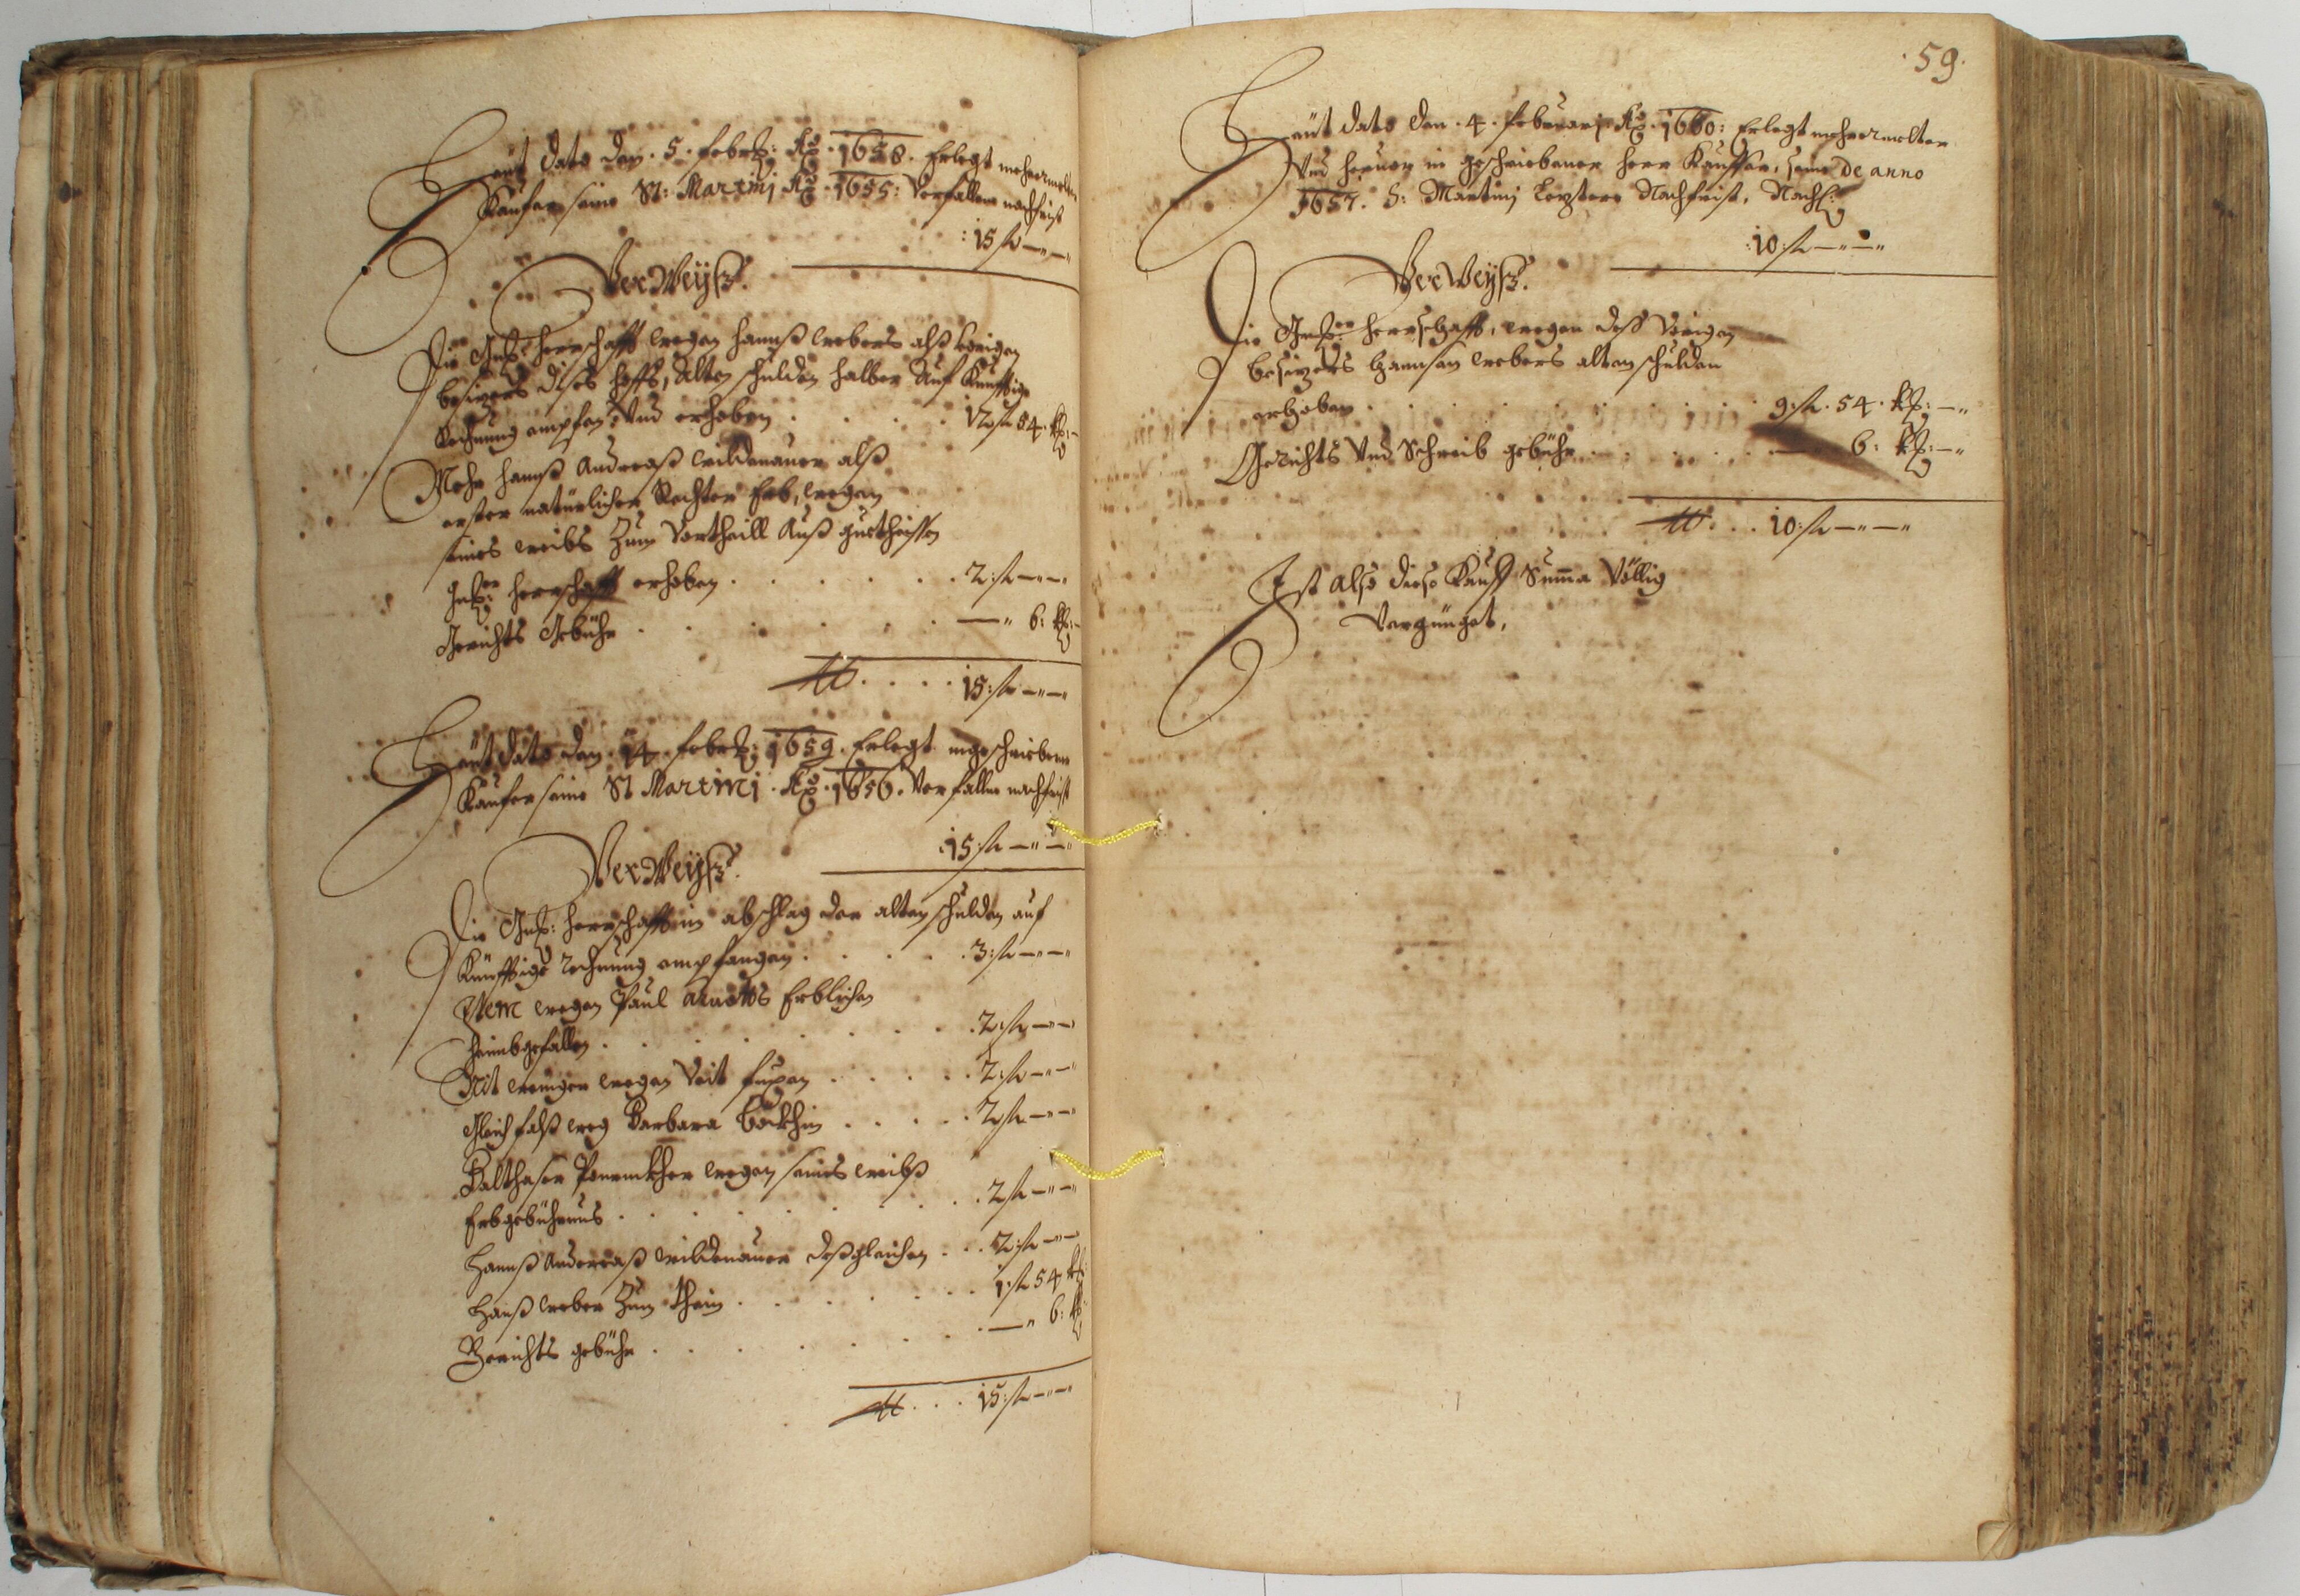 Heüt dato den . 5 . Febr: Ao . 1658 . Erlegt mehrermelter
Kaufer seine St: Martinj Ao . 1655: Verfallene nachfrist
: 15 fl — „ —
Verweyß.
Die Gn: Herrschafft wegen Hannß Webers alß Vorigen
besizers dises Hoffs, Alten schulden halber Auf Künfftige
Rechnung empfan: Vnd erhoben . . . . 12 fl 54 . kr: —
Mehr Hannß Andreaß Wildenauer alß
erster natürlicher Rechter Erb, wegen
seines Weibs Zum Vortheill Auß
Gn: Herrschafft erhoben . . . . . . 2: fl — „ —
Gerichts Gebühr . . . . . . — „ 6: kr: —
. . . . 15: fl — „ —
Heüt dato den . 14 . Febr: 1659 . Erlegt ingeschriebener
Kaufer seine St Martinj . Ao . 1656 . Verfallne nachfrist
: 15: fl — „ —
Verweyß.
Die Gn: Herrschafft in abschlag der alten schulden auf
Künfftige rechnung empfangen . . . . . 3: fl — „ —
Item wegen Paul Erblichen
Heimbgefallen . . . . . . . 2: fl — „ —
Nit weniger wegen Veit . . . . . 2: fl — „ —
Gleichfalß weg Barbara Böckhin . . . . . 2 fl — „ —
Balthaser wegen seines Weibß
Erbgebührnus . . . . . . . 2 fl — „ —
Hannß Andereaß Wildenauer deßgleichen . . . 2: fl — „ —
Hanß Weber Zum Thein . . . . . . 1: fl 54 kr:
Gerichts gebühr . . . . . . — „ 6: kr:
. . . 15: fl — „ —
. 59 .
Heüt dato den . 4 . Februarj . Ao . 1660: Erlegt mehrermelter
Vnd hervor in geschriebener Herr Kauffer, seine De anno
1657 . S: Martinj Leztere Nachfrist,
: 10: fl — „ — „
Verweyß.
Die Gn: Herrschafft, wegen deß Vorigen
besizers Hannsen Webers alten schulden
erhoben . . . . . . . . 9: fl . 54 . kr: — „
Gerichts Vnd Schreib gebühr . . . . . — 6: kr: — „
. . . 10: fl — „ — „
Ist Also diese Kauff Suma Völlig
Vergnüget,